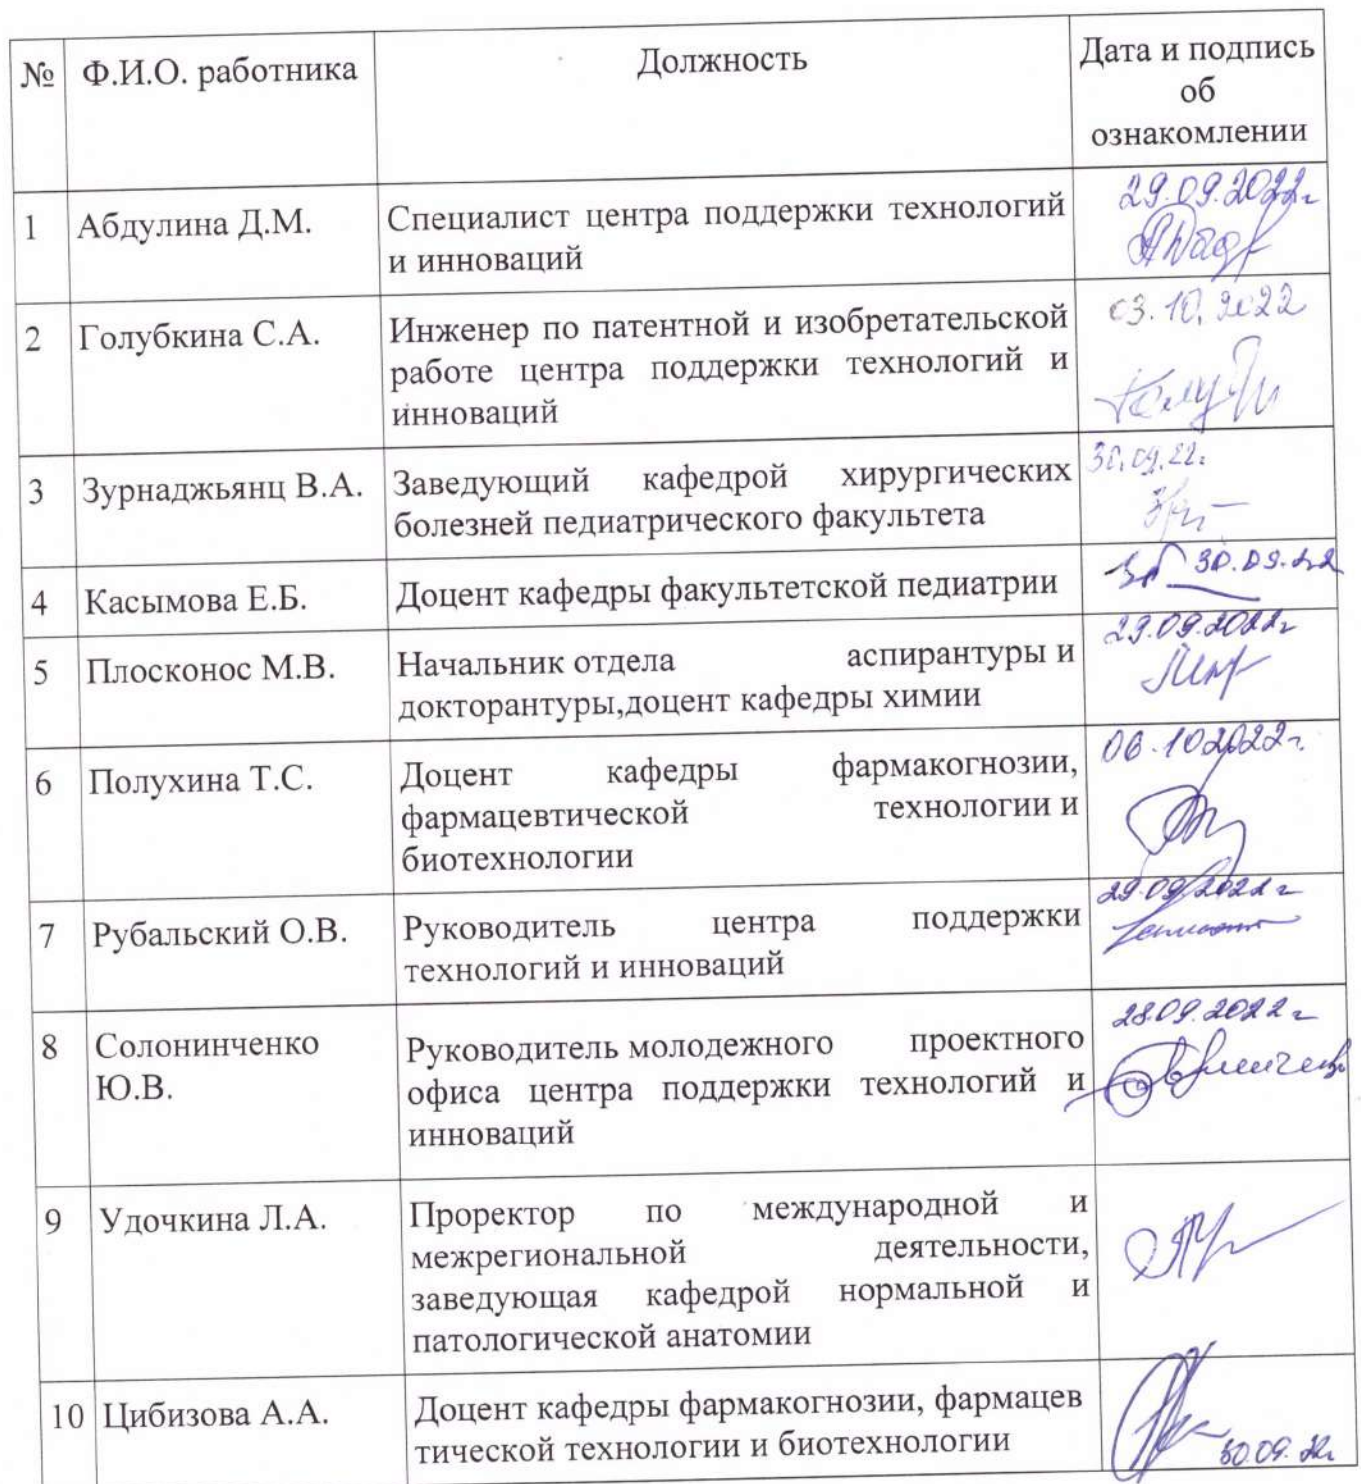 № Ф.И.О. работника Должность Дата и подпись
об
ознакомлении
1 Абдулина Д.М. Специалист центра поддержки технологий
и инноваций
29.09.2022г
2 Голубкина С.А. Инженер по патентной и изобретательской
работе центра поддержки технологий и
инноваций
03.10.2022
3 Зурнаджьянц В.А. Заведующий кафедрой хирургических
болезней педиатрического факультета
30.09.22г
4 Касымова Е.Б. Доцент кафедры факультетской педиатрии
30.09.22
5 Плосконос М.В. Начальник отдела аспирантуры и
докторантуры,доцент кафедры химии
29.09.2022г
6 Полухина Т.С. Доцент кафедры фармакогнозии,
фармацевтической технологии и
биотехнологии
06.10.2022г
7 Рубальский О.В. Руководитель центра поддержки
технологий и инноваций
29.09.2022г
8 Солонинченко
Ю.В.
Руководитель молодежного проектного
офиса центра поддержки технологий и
инноваций
28.09.2022г
9 Удочкина Л.А. Проректор по международной и
межрегиональной деятельности,
заведующая кафедрой нормальной и
патологической анатомии
10 Цибизова А.А. Доцент кафедры фармакогнозии, фармацев
тической технологии и биотехнологии
30.09.22г